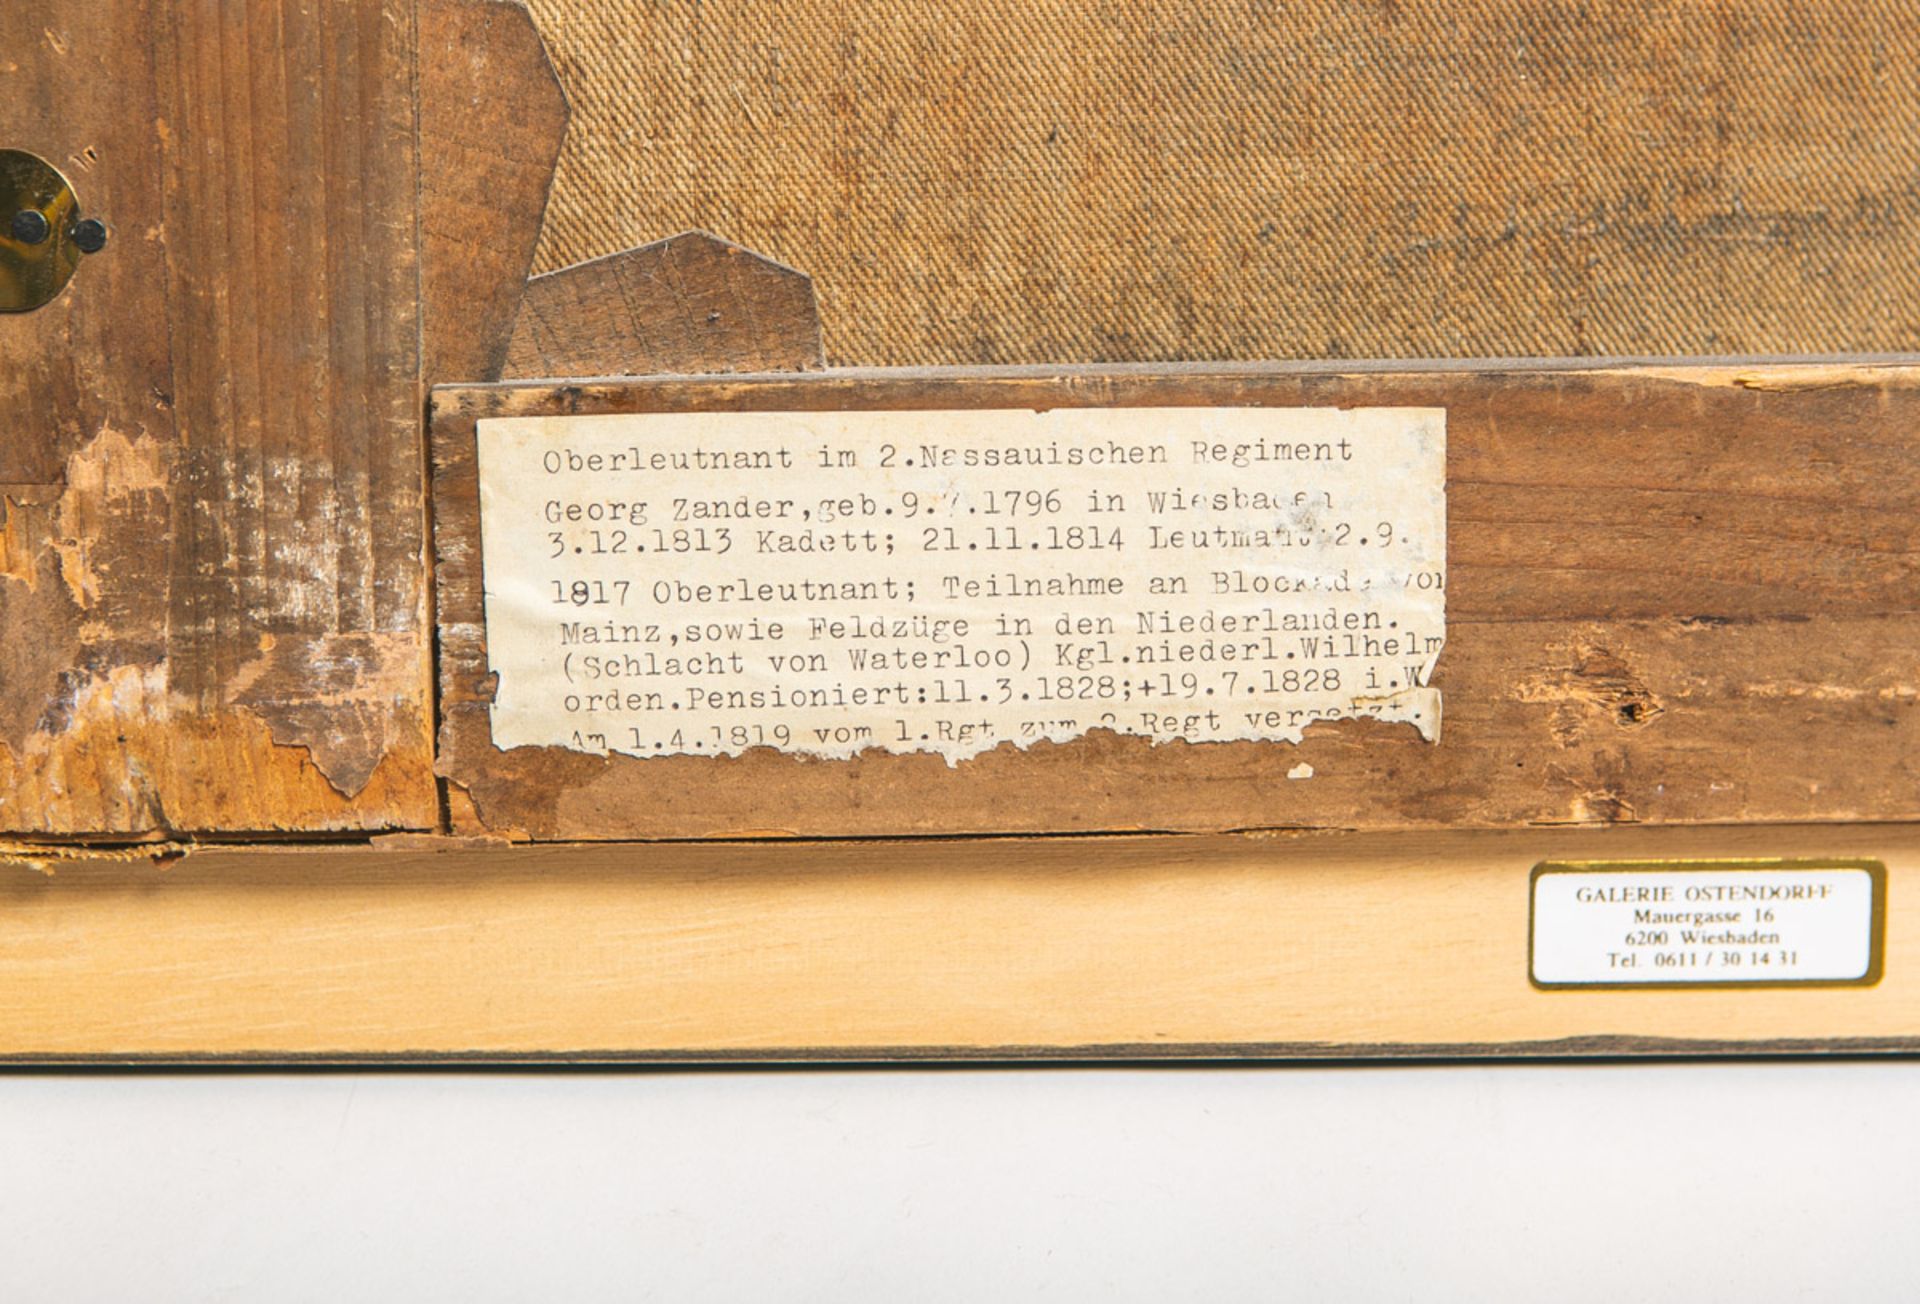 Oberleutnant im 2.Nassauischen Regiment
Georg Zander,geb.9. .1796 in Wiesbaden
3.12.1813 Kadett; 21.11.1814 Leutmant 2.9.
1817 Oberleutnant; Teilnahme an Blockade von
Mainz,sowie Feldzüge in den Niederlanden.
(Schlacht von Waterloo) Kgl.niederl.Wilhelm
orden.Pensioniert:11.3.1828;+19.7.1828 i.W
Am 1.4.1819 vom 1.Rgt zum 2.Regt versetzt.
GALERIE OSTENDORFF
Mauergasse 16
6200 Wiesbaden
Tel. 0611 / 30 14 31